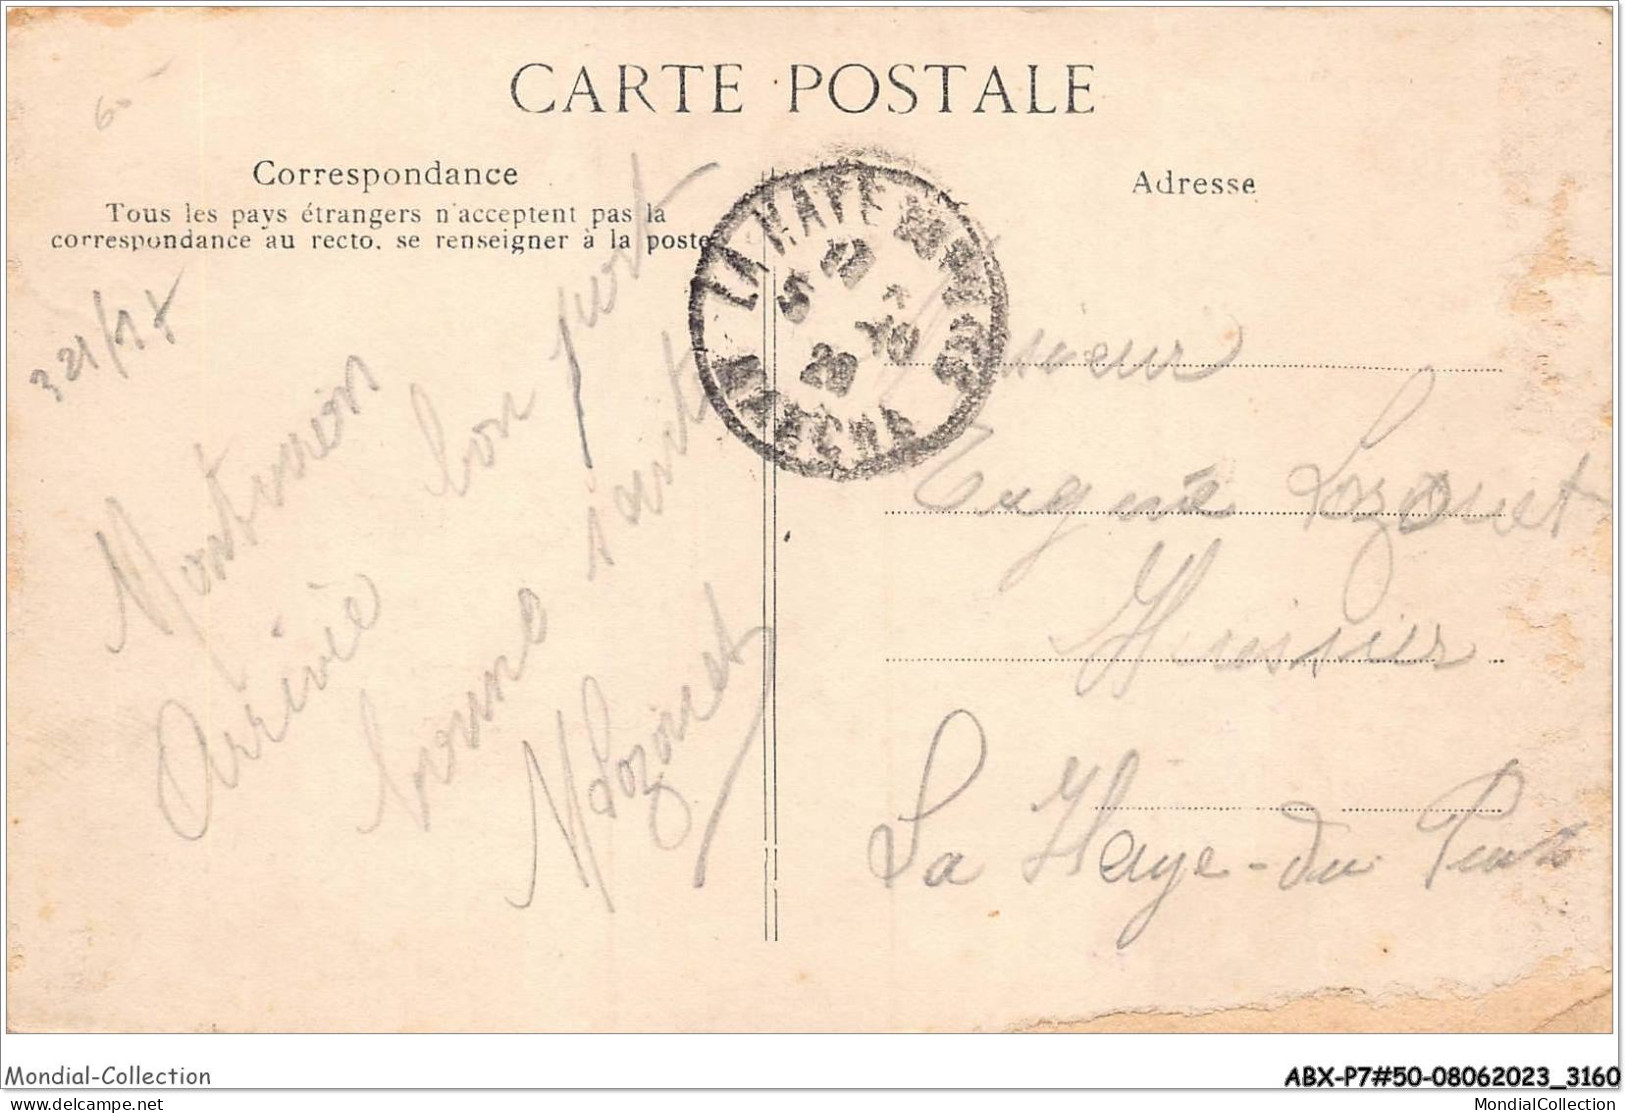 CARTE POSTALE
60
Correspondance
Tous les pays étrangers n'acceptent pas la
correspondance au recto, se renseigner à la poste
321/17
Arrivée bon port
bonne santé
M Lozouet
LA HAYE
MANCHE
Adresse
Monsieur
Eugène Lozouet
Huissier
La Haye-du Puits
Mondial-Collection
ABX-P7#50-08062023_3160
delcampe.net
MondialCollection